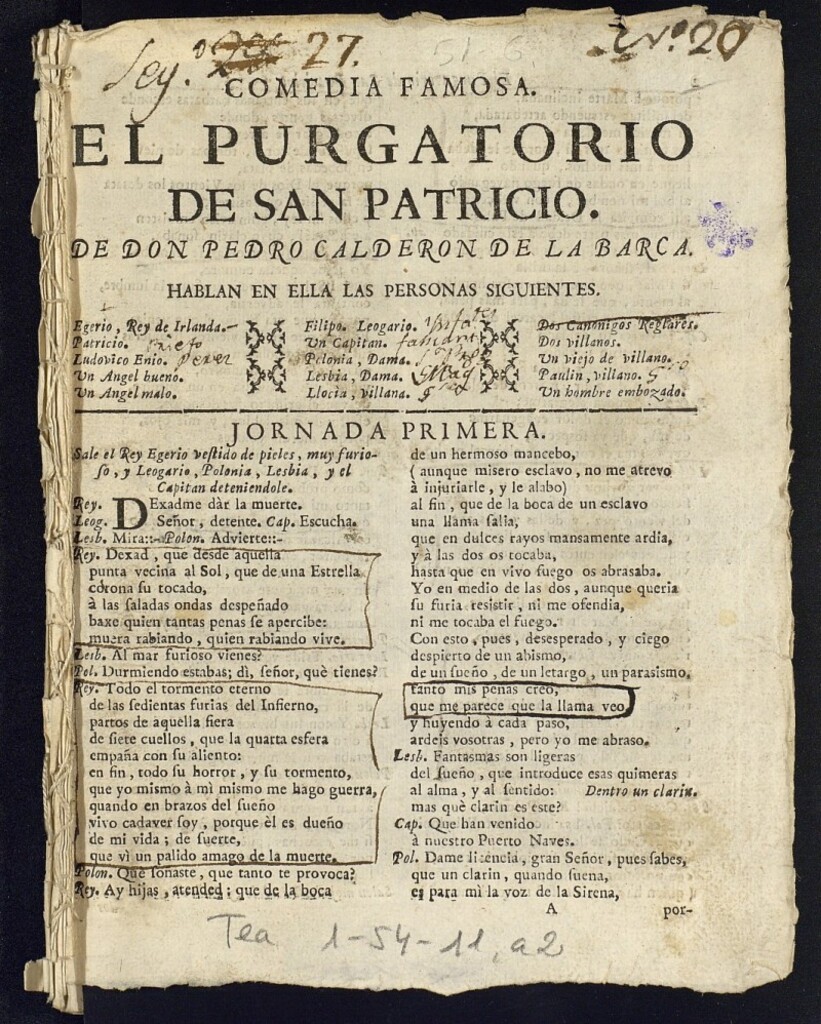 27.
Nº. 20
COMEDIA FAMOSA.
EL PURGATORIO
DE SAN PATRICIO.
DE DON PEDRO CALDERON DE LA BARCA.
HABLAN EN ELLA LAS PERSONAS SIGUIENTES.
Egerio, Rey de Irlanda.
Patricio.
Ludovico Enio. perez
Un Angel bueno.
Un Angel malo.
Filipo. Leogario.
Un Capitan.
Polonia, Dama.
Lesbia, Dama.
Llocia, villana.
Dos Canonigos Reglares.
Dos villanos.
Un viejo de villano.
Paulin, villano.
Un hombre embozado.
JORNADA PRIMERA.
Sale el Rey Egerio veſtido de pieles, muy furio-
ſo, y Leogario, Polonia, Lesbia, y el
Capitan deteniendole.
Rey. DExadme dàr la muerte.
Leog. Señor, detente. Cap. Eſcucha.
Lesb. Mira::- Polon. Advierte::-
Rey. Dexad, que desde aquella
punta vecina al Sol, que de una Eſtrella
corona ſu tocado,
à las ſaladas ondas deſpeñado
baxe quien tantas penas ſe apercibe:
muera rabiando, quien rabiando vive.
Lesb. Al mar furioso vienes?
Pol. Durmiendo eſtabas; dì, ſeñor, què tienes?
Rey. Todo el tormento eterno
de las ſedientas furias del Infierno,
partos de aquella fiera
de ſiete cuellos, que la quarta esfera
empaña con ſu aliento:
en fin, todo ſu horror, y ſu tormento,
que yo miſmo à mì miſmo me hago guerra,
quando en brazos del ſueño
vivo cadaver ſoy, porque èl es dueño
de mi vida; de ſuerte,
que vì un palido amago de la muerte.
Polon. Què ſoñaste, que tanto te provoca?
Rey. Ay hijas, atended; que de la boca
de un hermoso mancebo,
(aunque misero esclavo, no me atrevo
à injuriarle, y le alabo)
al fin, que de la boca de un esclavo
una llama ſalia,
que en dulces rayos mansamente ardia,
y à las dos os tocaba,
haſta que en vivo fuego os abraſaba.
Yo en medio de las dos, aunque queria
ſu furia reſiſtir, ni me ofendia,
ni me tocaba el fuego.
Con eſto, pues, deſeſperado, y ciego
deſpierto de un abiſmo,
de un ſueño, de un letargo, un paraſiſmo,
tanto mis penas creo,
que me parece que la llama veo,
y huyendo à cada paſo,
ardeis vosotras, pero yo me abraſo.
Lesb. Fantaſmas ſon ligeras
del ſueño, que introduce eſas quimeras
al alma, y al ſentido: Dentro un clarin.
mas què clarin es eſte?
Cap. Que han venido
à nueſtro Puerto Naves.
Pol. Dame licencia, gran Señor, pues ſabes,
que un clarin, quando ſuena,
es para mì la voz de la Sirena,
A
por-
Tea 1-54-11, a2